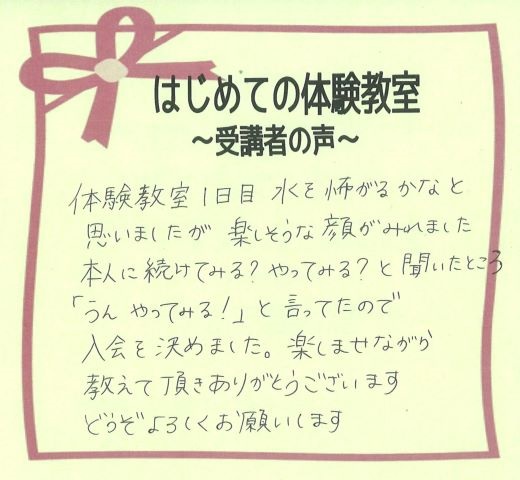 はじめての体験教室
～受講者の声～
体験教室 1日目 水を怖がるかなと
思いましたが 楽しそうな顔がみれました
本人に続けてみる？やってみる？と聞いたところ
「うん やってみる！」と言ってたので
入会を決めました。楽しませながら
教えて頂きありがとうございます
どうぞよろしくお願いします